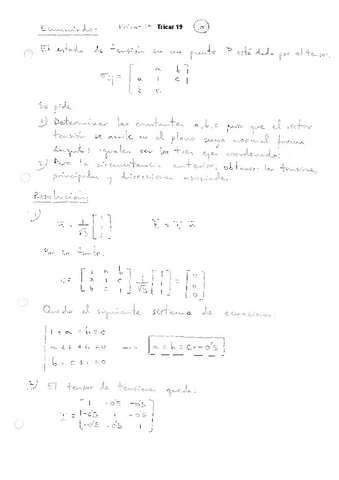 Enunciado: Tricar 19
El estado de tensión en un punto P está dado por el tensor.
σij = [ a b
a 1 c
b c ]
Se pide.
1) Determinar las constantes a, b, c para que el vector
tensión se anule en el plano cuya normal forma
ángulos iguales con los tres ejes coordenados.
2) Para la circunstancia anterior, obtener las tensiones
principales y direcciones asociadas.
Resolución:
1) n = 1/√3 [1 1 1]
Por lo tanto.
[1 a b
a 1 c
b c 1] 1/√3 [1 1 1] = [0 0 0]
Queda el siguiente sistema de ecuaciones:
1 + a + b = 0
a + 1 + c = 0 ⟹ a = b = c = -0'5
b + c + 1 = 0
2) El tensor de tensiones queda:
T = [1 -0'5 -0'5
-0'5 1 -0'5
-0'5 -0'5 1]